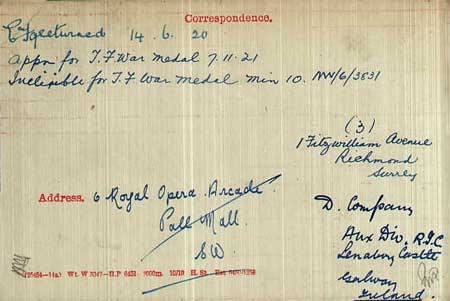 Correspondence.
returned 14.6.20
Appn for T.F War Medal 7.11.21
Ineligible for T.F War Medal Min 10. NW/6/3831
(3)
1 Fitzwilliam Avenue
Richmond
Surrey
Address. 6 Royal Opera Arcade
Pall Mall
SW
D. Company
Aux Div. R.I.C
Lenaboy Castle
Galway
Ireland.
Wt. W 3047—H.P 2000m. 10/18 H. St.